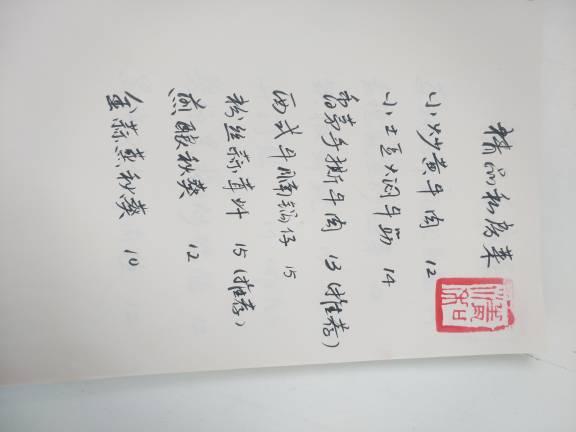 精品私房菜
小炒黄牛肉 12
小土豆焖牛腩 14
香芹手撕牛肉 13（推荐）
西式牛腩锅仔 15
粉丝蒜蓉虾 15（推荐）
煎酿秋葵 12
金蒜蒸秋葵 10